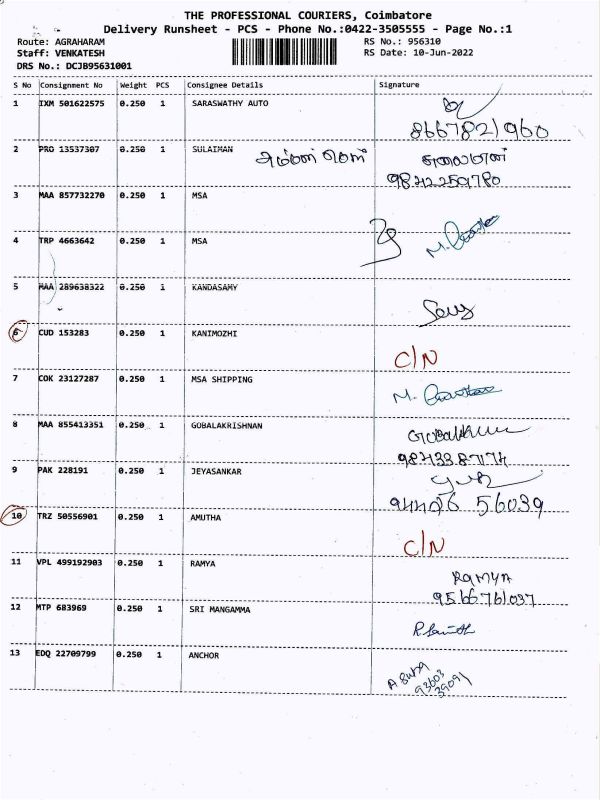 THE PROFESSIONAL COURIERS, Coimbatore
Delivery Runsheet - PCS - Phone No.:0422-3505555 - Page No.:1
Route: AGRAHARAM RS No.: 956310
Staff: VENKATESH RS Date: 10-Jun-2022
DRS No.: DCJB95631001
S No Consignment No Weight PCS Consignee Details Signature
1 IXM 501622575 0.250 1 SARASWATHY AUTO
8667821960
2 PRO 13537307 0.250 1 SULAIMAN
9842259780
3 MAA 857732270 0.250 1 MSA
4 TRP 4663642 0.250 1 MSA
5 MAA 289638322 0.250 1 KANDASAMY
6 CUD 153283 0.250 1 KANIMOZHI
C/N
7 COK 23127287 0.250 1 MSA SHIPPING
8 MAA 855413351 0.250 1 GOBALAKRISHNAN
9 PAK 228191 0.250 1 JEYASANKAR
56039
10 TRZ 50556901 0.250 1 AMUTHA
C/N
11 VPL 499192903 0.250 1 RAMYA
RAMYA
9566761037
12 MTP 683969 0.250 1 SRI MANGAMMA
13 EDQ 22709799 0.250 1 ANCHOR
93603
39091